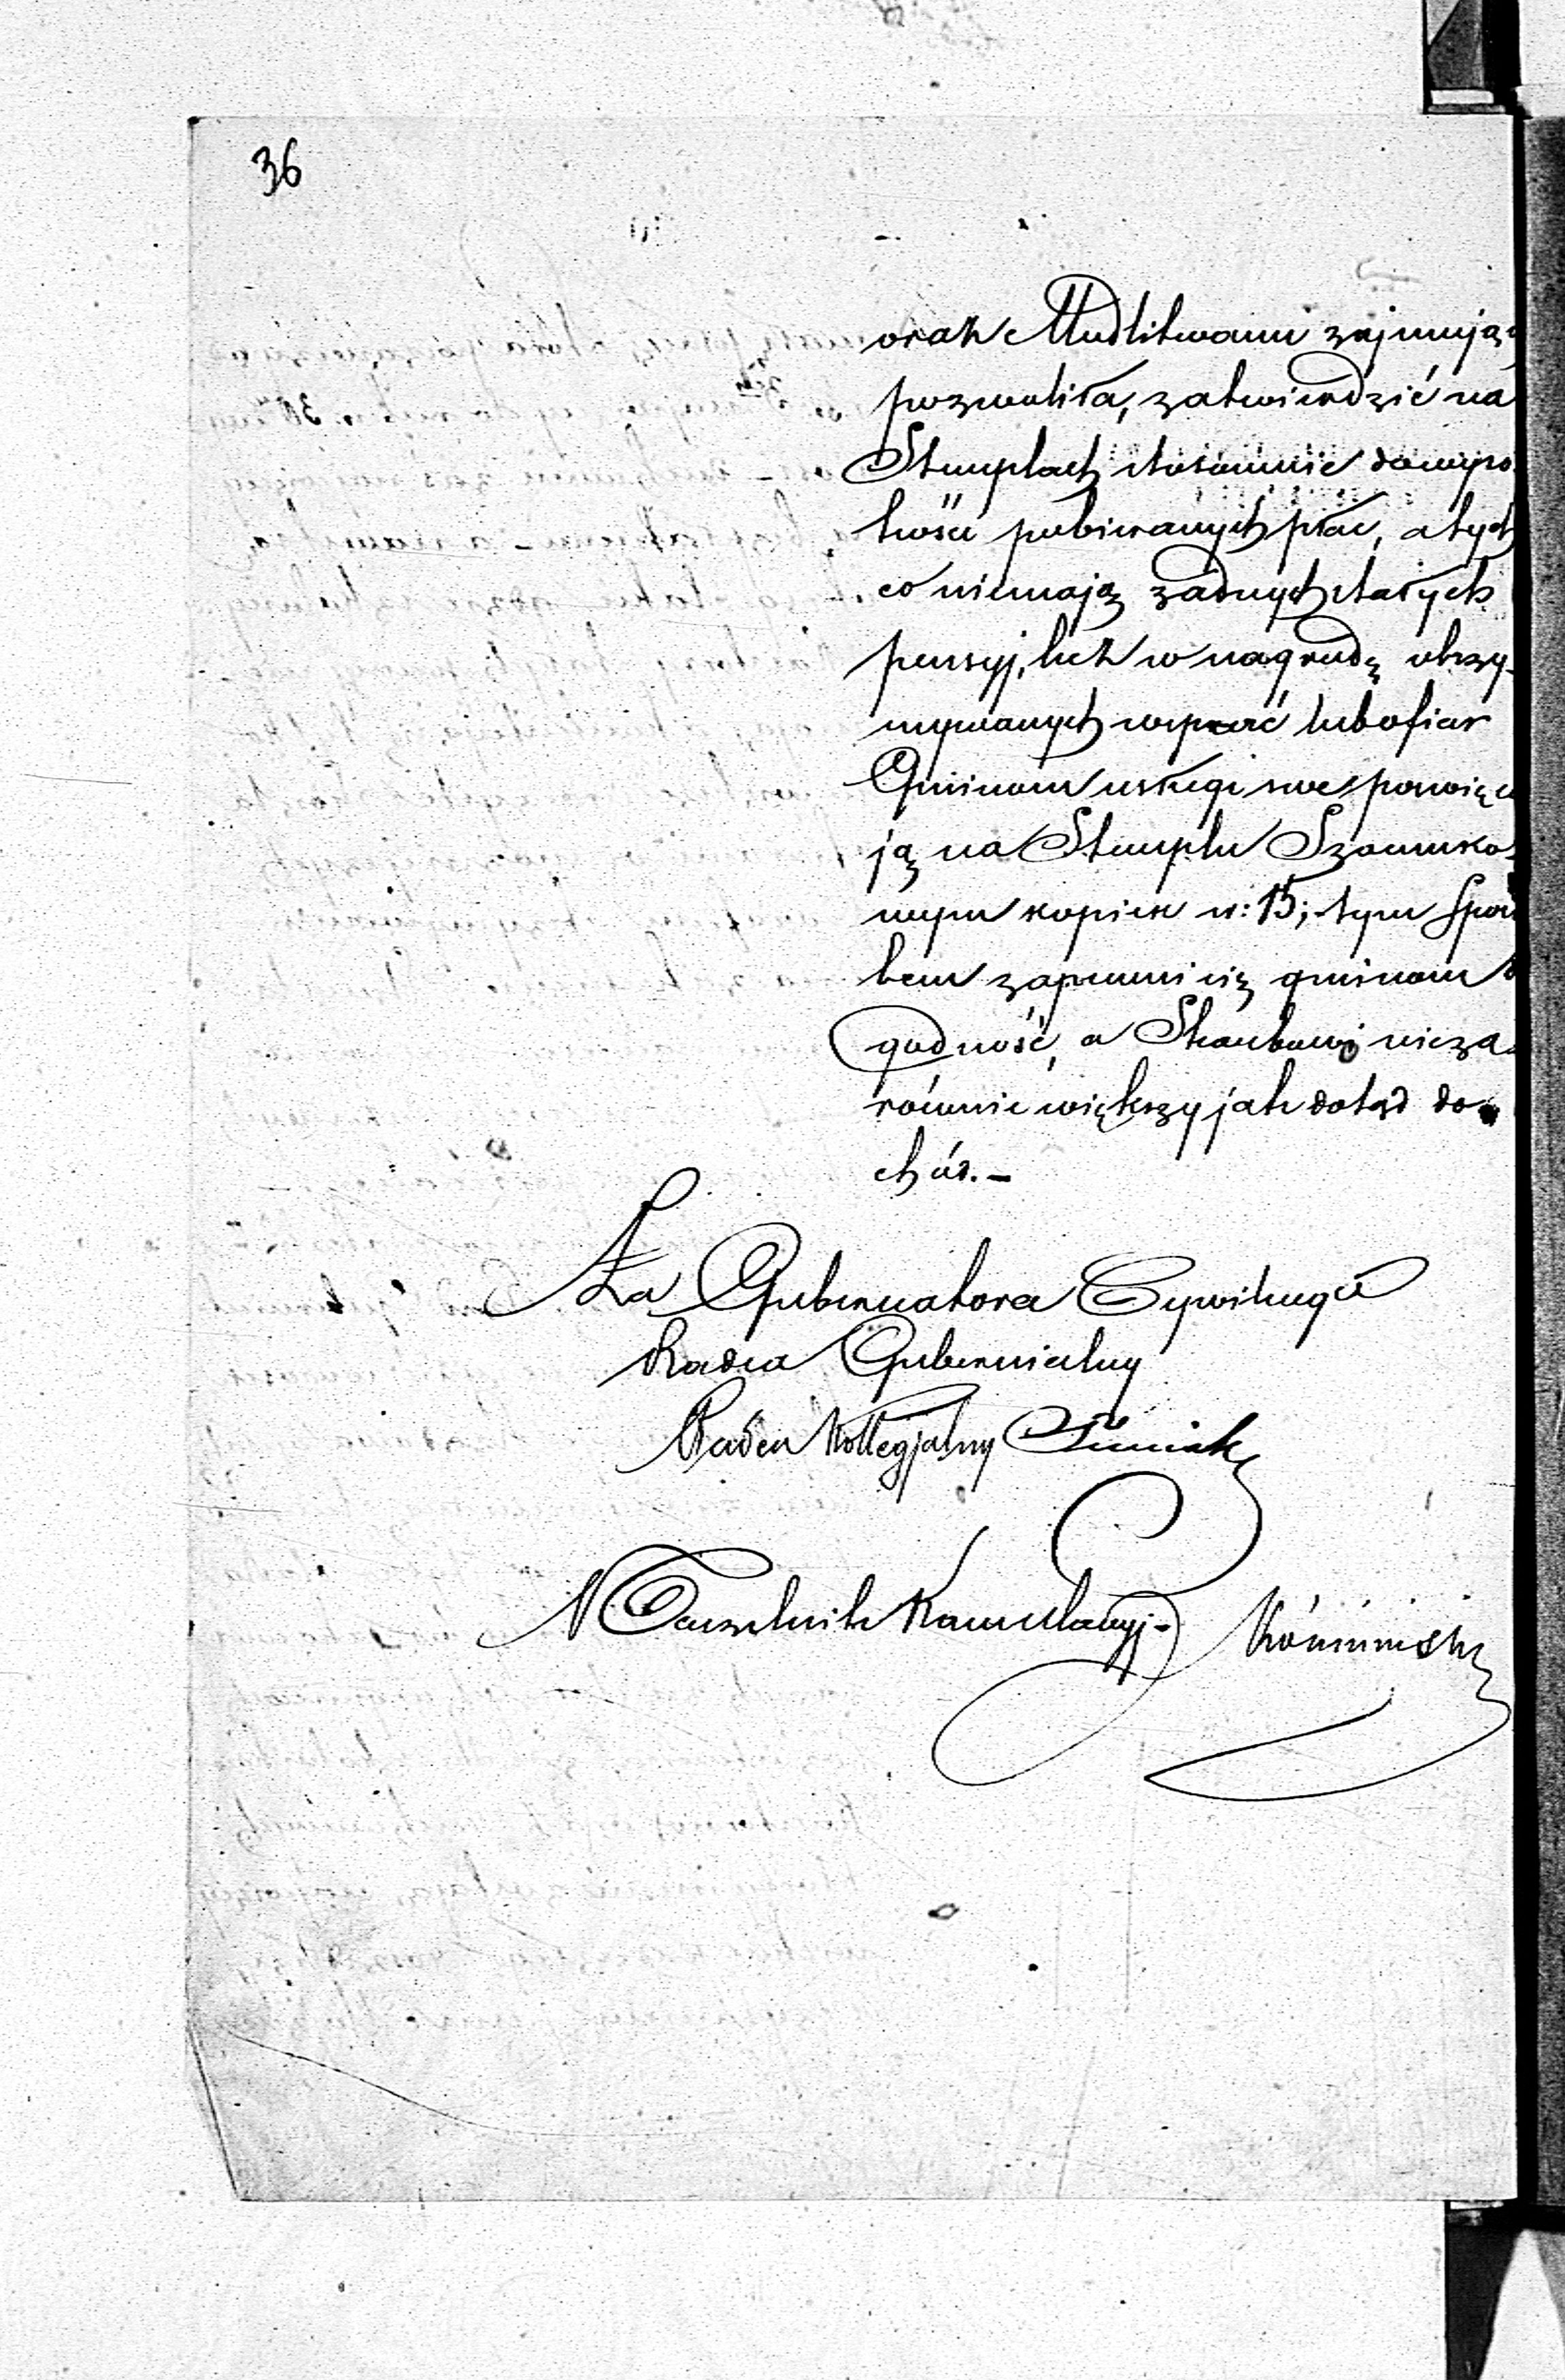 36
oraz Modlitwami zajmując
pozwoliła, zatwierdzić na
Stemplach stosownie do wyso
kości pobieranych płac, a tych
co niemają żadnych stałych
pensyj, lecz w nagrodę otrzy-
mywanych wsparć lub ofiar
Gminom usługi swe poswięca
ją na Stemplu Szacunko-
wym kopiek sr: 15; tym Sposo
bem zapewni się gminom
godność, a Skarbowi nieza-
równie większy jak dotąd do-
chód. –
Za Gubernatora Cywilnego
Radca Gubernialny
Radca Kollegjalny
Naczelnik Kancellaryj –